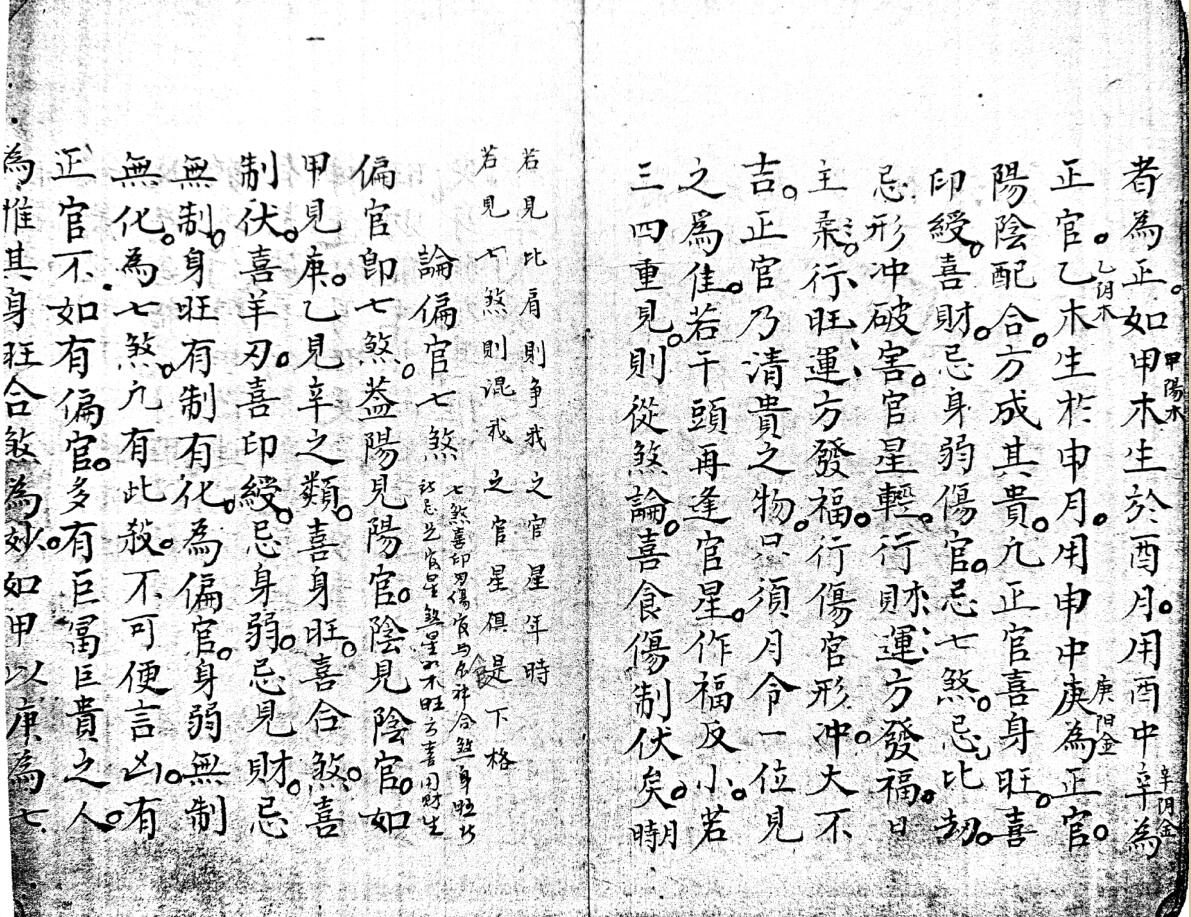 者為正。如甲木生於酉月。用酉中辛為
甲陽木
辛阴金
正官。乙木生於申月。用申中庚為正官。
乙阴木
庚阳金
陽陰配合。方成其貴。凢正官喜身旺。喜
印綬。喜財。忌身弱傷官。忌七煞。忌比刼。
忌形冲破害。官星輕。行財運方發福。日
主柔行旺運方發福。行傷官形冲。大不
吉。正官乃清貴之物。只須月令一位見
之爲佳。若干頭再逢官星。作福反小。若
三四重見。則從煞論。喜食傷制伏矣。月時
若見比肩則争我之官星年時
若見七煞則混我之官星俱是下格
論偏官七煞
七煞喜印刃傷官与食神合煞身旺
忌見官星煞星 不旺方喜用財生
偏官即七煞。葢陽見陽官。陰見陰官。如
甲見庚。乙見辛之類。喜身旺。喜合煞。喜
制伏。喜羊刃。喜印綬。忌身弱。忌見財。忌
無制。身旺有制有化。為偏官。身弱無制
無化。為七煞。凢有此殺。不可便言凶。有
正官不如有偏官。多有巨富巨貴之人。
為惟其身旺合煞為妙。如甲以庚為七